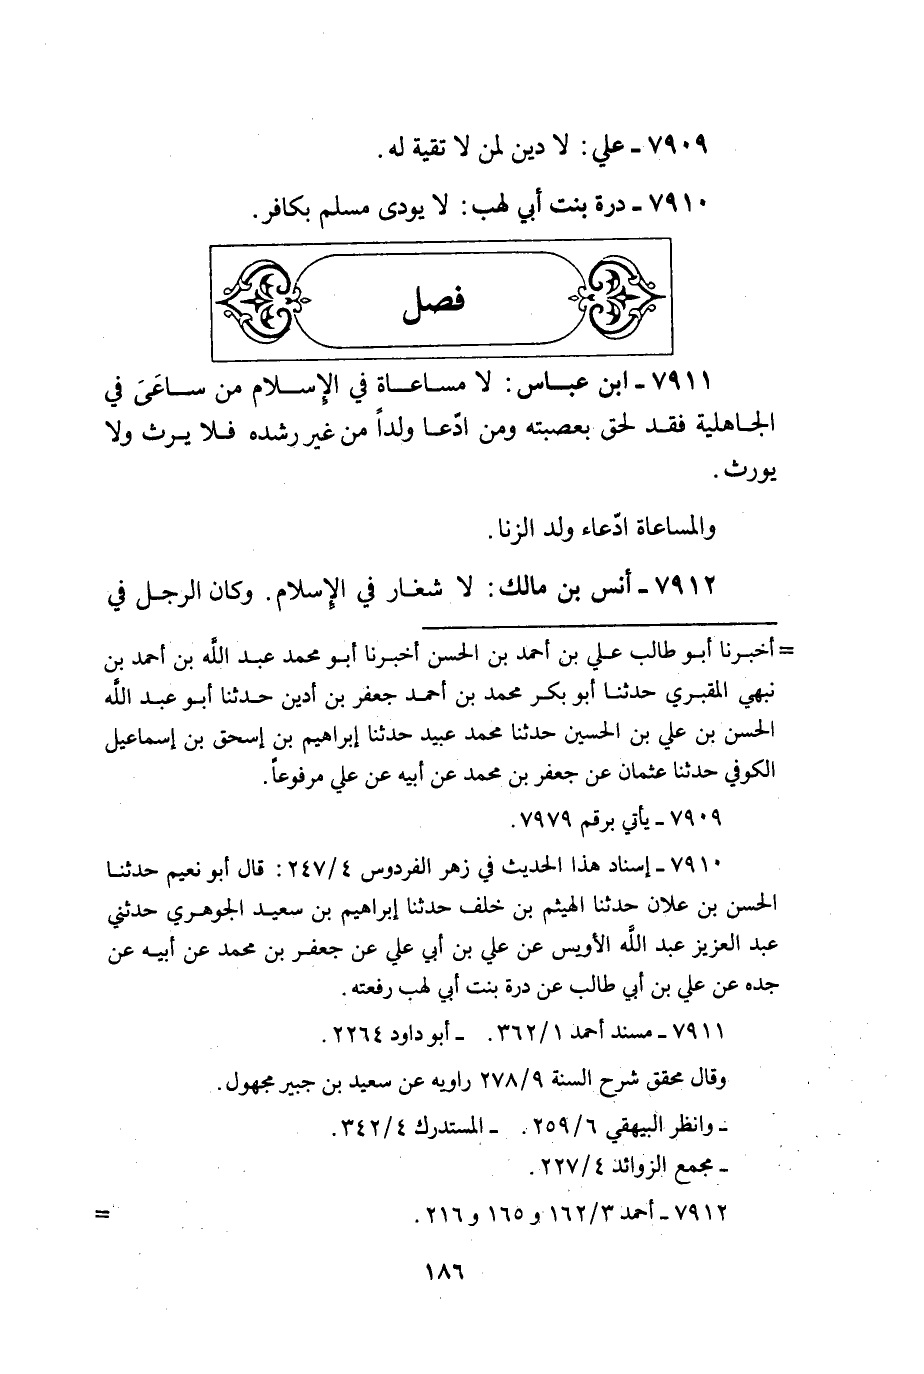 ٧٩٠٩ ـ علي: لا دين لمن لا تقية له.
٧٩١٠ ـ درة بنت أبي لهب: لا يودى مسلم بكافر.
فصل
٧٩١١ ـ ابن عباس: لا مساعاة في الإسلام من ساعَىَ في
الجاهلية فقد لحق بعصبته ومن ادّعا ولداً من غير رشده فلا يرث ولا
يورث.
والمساعاة ادّعاء ولد الزنا.
٧٩١٢ ـ أنس بن مالك: لا شغار في الإسلام. وكان الرجل في
= أخبرنا أبو طالب علي بن أحمد بن الحسن أخبرنا أبو محمد عبد الله بن أحمد بن
نبهي المقبري حدثنا أبو بكر محمد بن أحمد جعفر بن أدين حدثنا أبو عبد الله
الحسن بن علي بن الحسين حدثنا محمد عبيد حدثنا إبراهيم بن إسحق بن إسماعيل
الكوفي حدثنا عثمان عن جعفر بن محمد عن أبيه عن علي مرفوعاً.
٧٩٠٩ ـ يأتي برقم ٧٩٧٩.
٧٩١٠ ـ إسناد هذا الحديث في زهر الفردوس ٢٤٧/٤: قال أبو نعيم حدثنا
الحسن بن علان حدثنا الهيثم بن خلف حدثنا إبراهيم بن سعيد الجوهري حدثني
عبد العزيز عبد الله الأويس عن علي بن أبي علي عن جعفر بن محمد عن أبيه عن
جده عن علي بن أبي طالب عن درة بنت أبي لهب رفعته.
٧٩١١ ـ مسند أحمد ٣٦٢/١. ـ أبو داود ٢٢٦٤.
وقال محقق شرح السنة ٢٧٨/٩ راويه عن سعيد بن جبير مجهول.
ـ وانظر البيهقي ٢٥٩/٦. ـ المستدرك ٣٤٢/٤.
ـ مجمع الزوائد ٢٢٧/٤.
٧٩١٢ ـ أحمد ١٦٢/٣ و ١٦٥ و ٢١٦. =
١٨٦